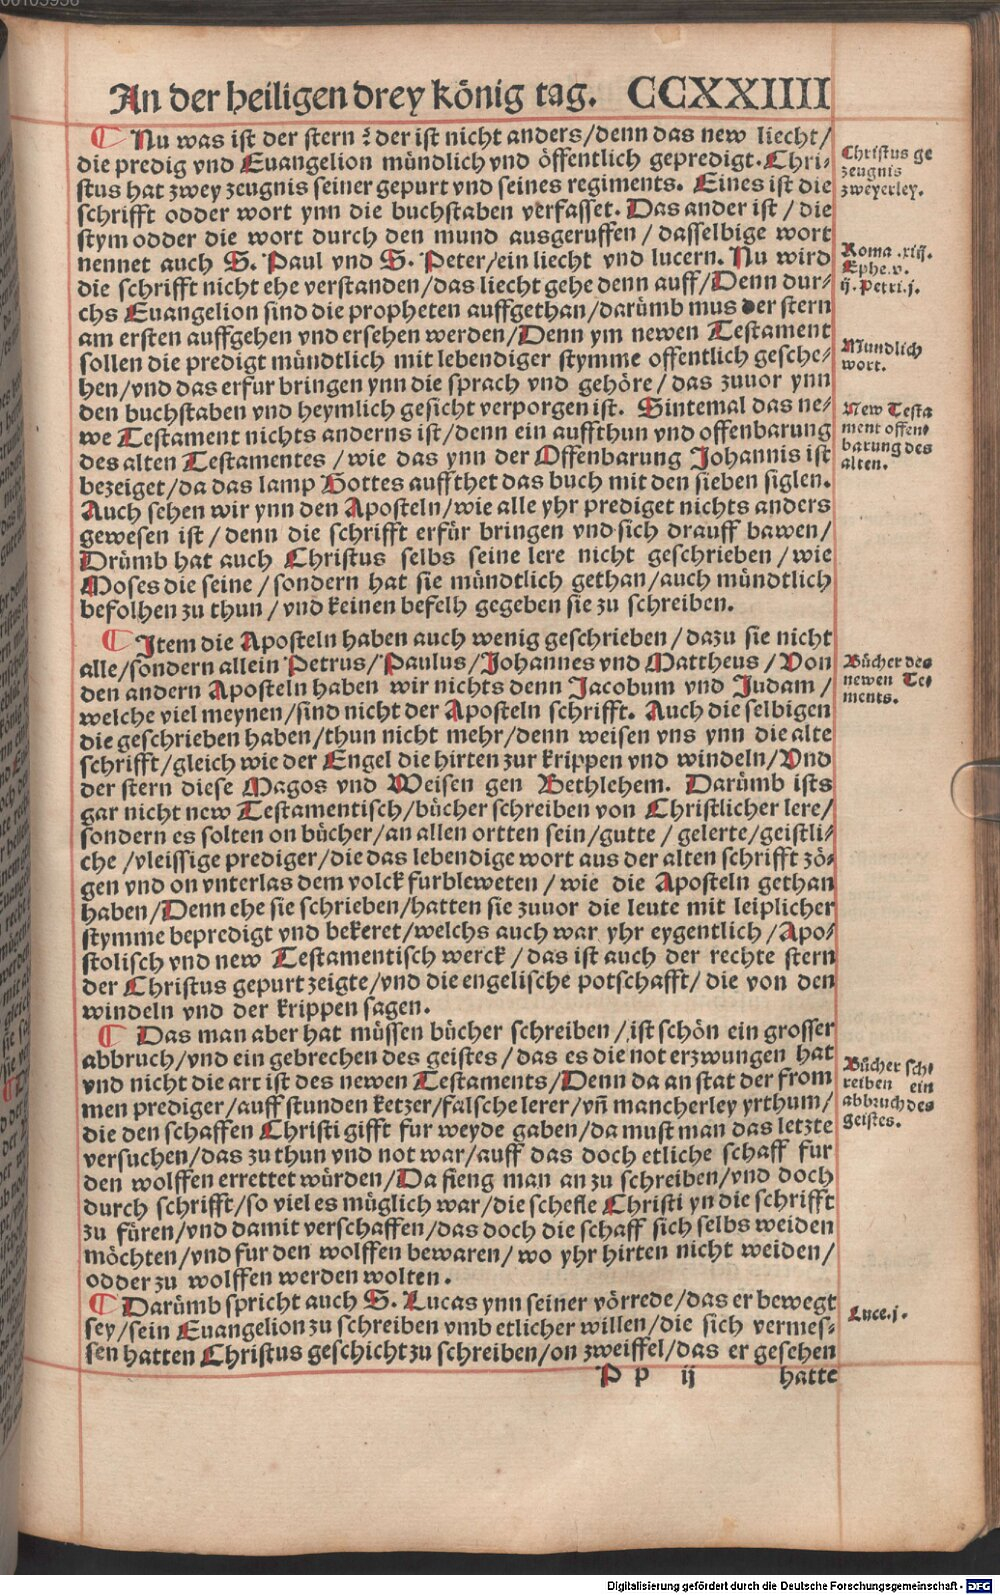 An der heiligen drey könig tag. CCXXIIII
¶ Nu was ist der stern? der ist nicht anders/denn das new liecht/
die predig vnd Euangelion mündlich vnd öffentlich gepredigt. Chri-
stus hat zwey zeugnis seiner gepurt vnd seines regiments. Eines ist die
schrifft odder wort ynn die buchstaben verfasset. Das ander ist/ die
stym odder die wort durch den mund ausgeruffen/ dasselbige wort
nennet auch S. Paul vnd S. Peter/ein liecht vnd lucern. Nu wird
die schrifft nicht ehe verstanden/das liecht gehe denn auff/Denn dur-
chs Euangelion sind die propheten auffgethan/darümb mus der stern
am ersten auffgehen vnd ersehen werden/Denn ym newen Testament
sollen die predigt mündtlich mit lebendiger stymme offentlich gesche-
hen/vnd das erfur bringen ynn die sprach vnd gehöre/ das zuuor ynn
den buchstaben vnd heymlich gesicht verporgen ist. Sintemal das ne-
we Testament nichts anderns ist/denn ein auffthun vnd offenbarung
des alten Testamentes/ wie das ynn der Offenbarung Johannis ist
bezeiget/da das lamp Gottes auffthet das buch mit den sieben siglen.
Auch sehen wir ynn den Aposteln/wie alle yhr prediget nichts anders
gewesen ist/ denn die schrifft erfür bringen vnd sich drauff bawen/
Drümb hat auch Christus selbs seine lere nicht geschrieben/ wie
Moses die seine/ sondern hat sie mündtlich gethan/auch mündtlich
befolhen zu thun/ vnd keinen befelh gegeben sie zu schreiben.
¶ Item die Aposteln haben auch wenig geschrieben/ dazu sie nicht
alle/sondern allein Petrus/ Paulus/Johannes vnd Mattheus/ Von
den andern Aposteln haben wir nichts denn Jacobum vnd Judam/
welche viel meynen/sind nicht der Aposteln schrifft. Auch die selbigen
die geschrieben haben/thun nicht mehr/denn weisen vns ynn die alte
schrifft/gleich wie der Engel die hirten zur krippen vnd windeln/Vnd
der stern diese Magos vnd Weisen gen Bethlehem. Darümb ists
gar nicht new Testamentisch/bücher schreiben von Christlicher lere/
sondern es solten on bücher/an allen ortten sein/gutte/ gelerte/geistli-
che/vleissige prediger/die das lebendige wort aus der alten schrifft zö-
gen vnd on vnterlas dem volck furbleweten/ wie die Aposteln gethan
haben/Denn ehe sie schrieben/hatten sie zuuor die leute mit leiplicher
stymme bepredigt vnd bekeret/welchs auch war yhr eygentlich/Apo-
stolisch vnd new Testamentisch werck/ das ist auch der rechte stern
der Christus gepurt zeigte/vnd die engelische potschafft/ die von den
windeln vnd der krippen sagen.
¶ Das man aber hat müssen bücher schreiben/ist schön ein grosser
abbruch/vnd ein gebrechen des geistes/ das es die not erzwungen hat
vnd nicht die art ist des newen Testaments/Denn da an stat der from
men prediger/auff stunden ketzer/falsche lerer/vñ mancherley yrthum/
die den schaffen Christi gifft fur weyde gaben/da must man das letzte
versuchen/das zu thun vnd not war/auff das doch etliche schaff fur
den wolffen errettet würden/Da fieng man an zu schreiben/vnd doch
durch schrifft/so viel es müglich war/die schefle Christi yn die schrifft
zu füren/vnd damit verschaffen/das doch die schaff sich selbs weiden
möchten/vnd fur den wolffen bewaren/ wo yhr hirten nicht weiden/
odder zu wolffen werden wolten.
¶ Darümb spricht auch S. Lucas ynn seiner vörrede/das er bewegt
sey/sein Euangelion zu schreiben vmb etlicher willen/die sich vermes-
sen hatten Christus geschicht zu schreiben/on zweiffel/das er gesehen
P p ij hatte
Christus ge
zeugnis
zweyerley.
Roma .xiij.
Ephe.v.
ij. Petri.j.
Mundlich
wort.
New Testa
ment offen-
barung des
alten.
Bücher des
newen Te-
ments.
Bücher sch-
reiben ein
abbruch des
geistes.
Luce.j.
Digitalisierung gefördert durch die Deutsche Forschungsgemeinschaft - DFG